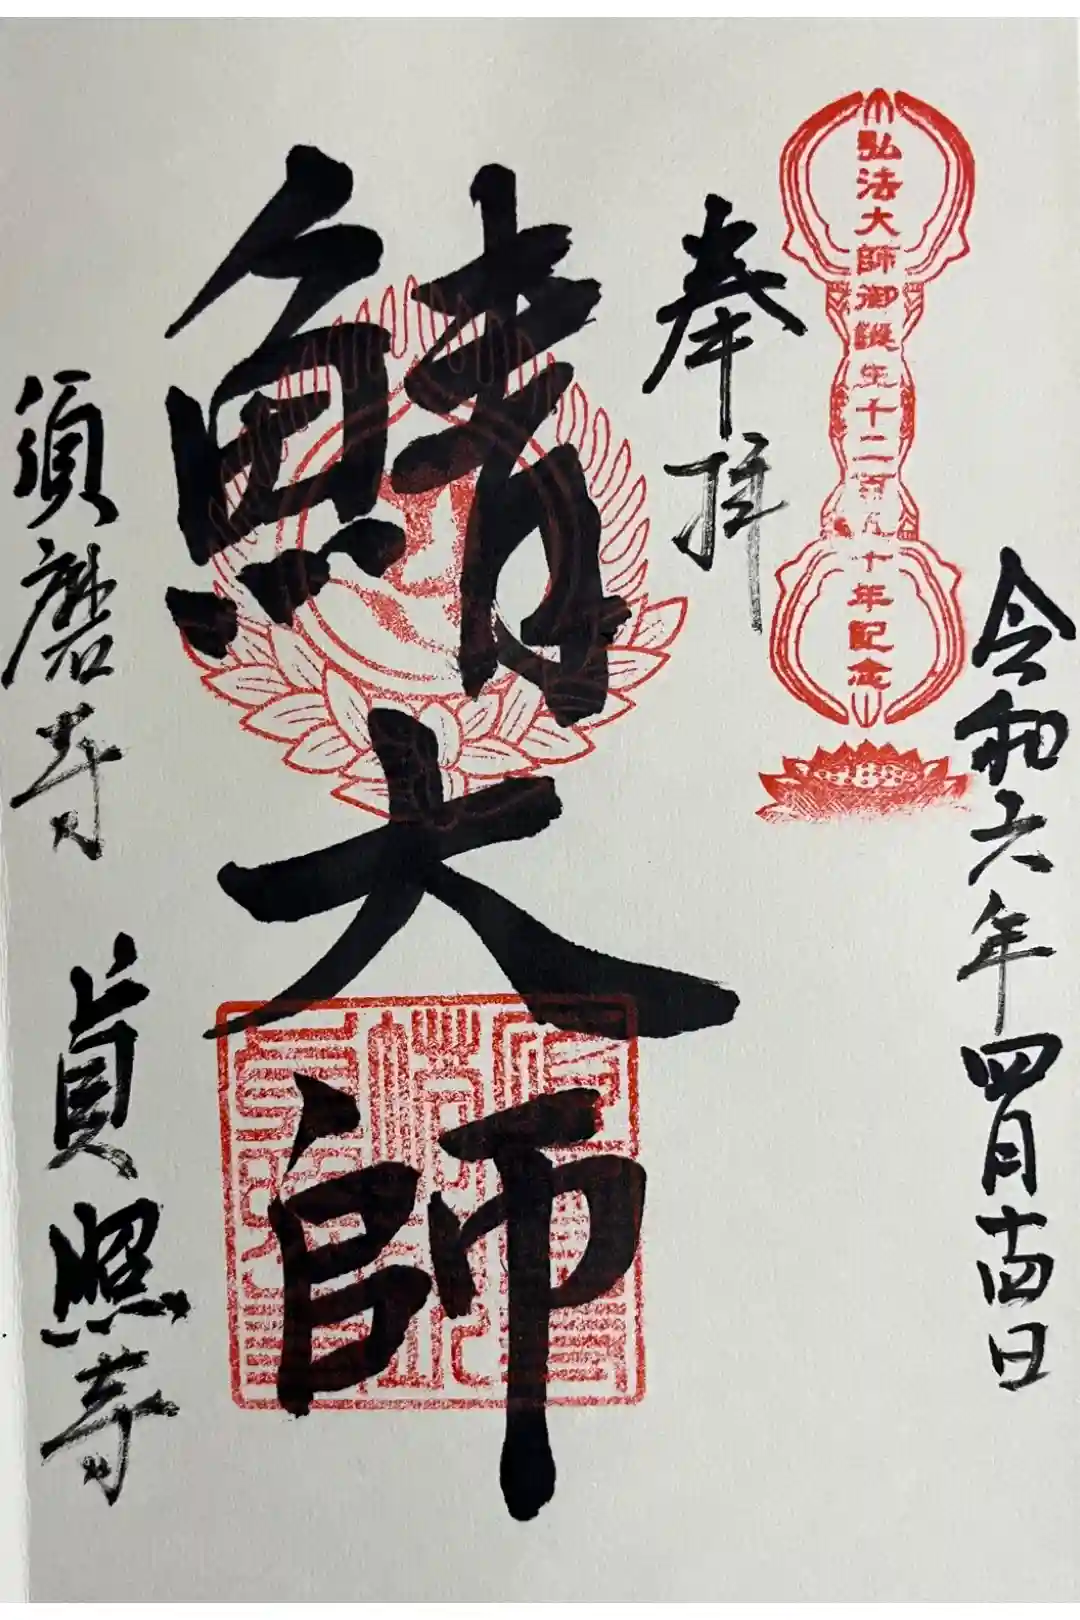 令和六年四月十四日
弘法大師御誕生十二百五十年記念
奉拝
鯖大師
須磨寺 貞照寺